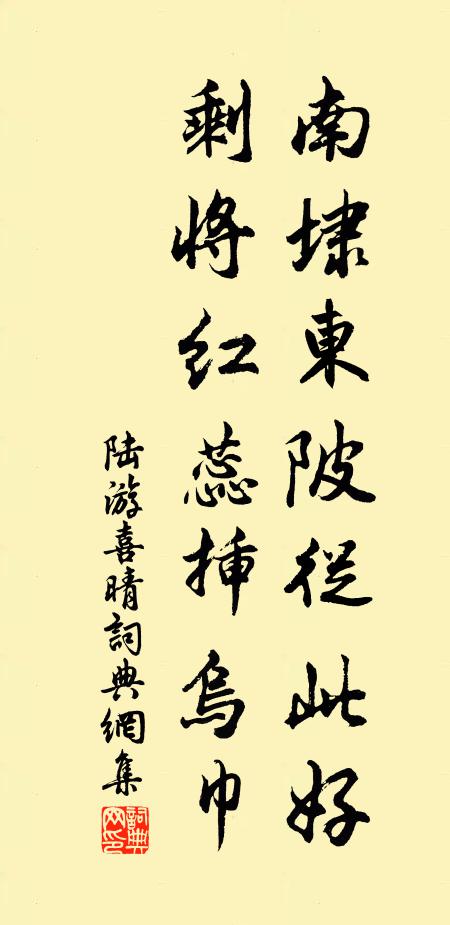 南埭東陂從此好
剩將紅蕊插烏巾
陸游喜晴詞典網集
詞典
网印